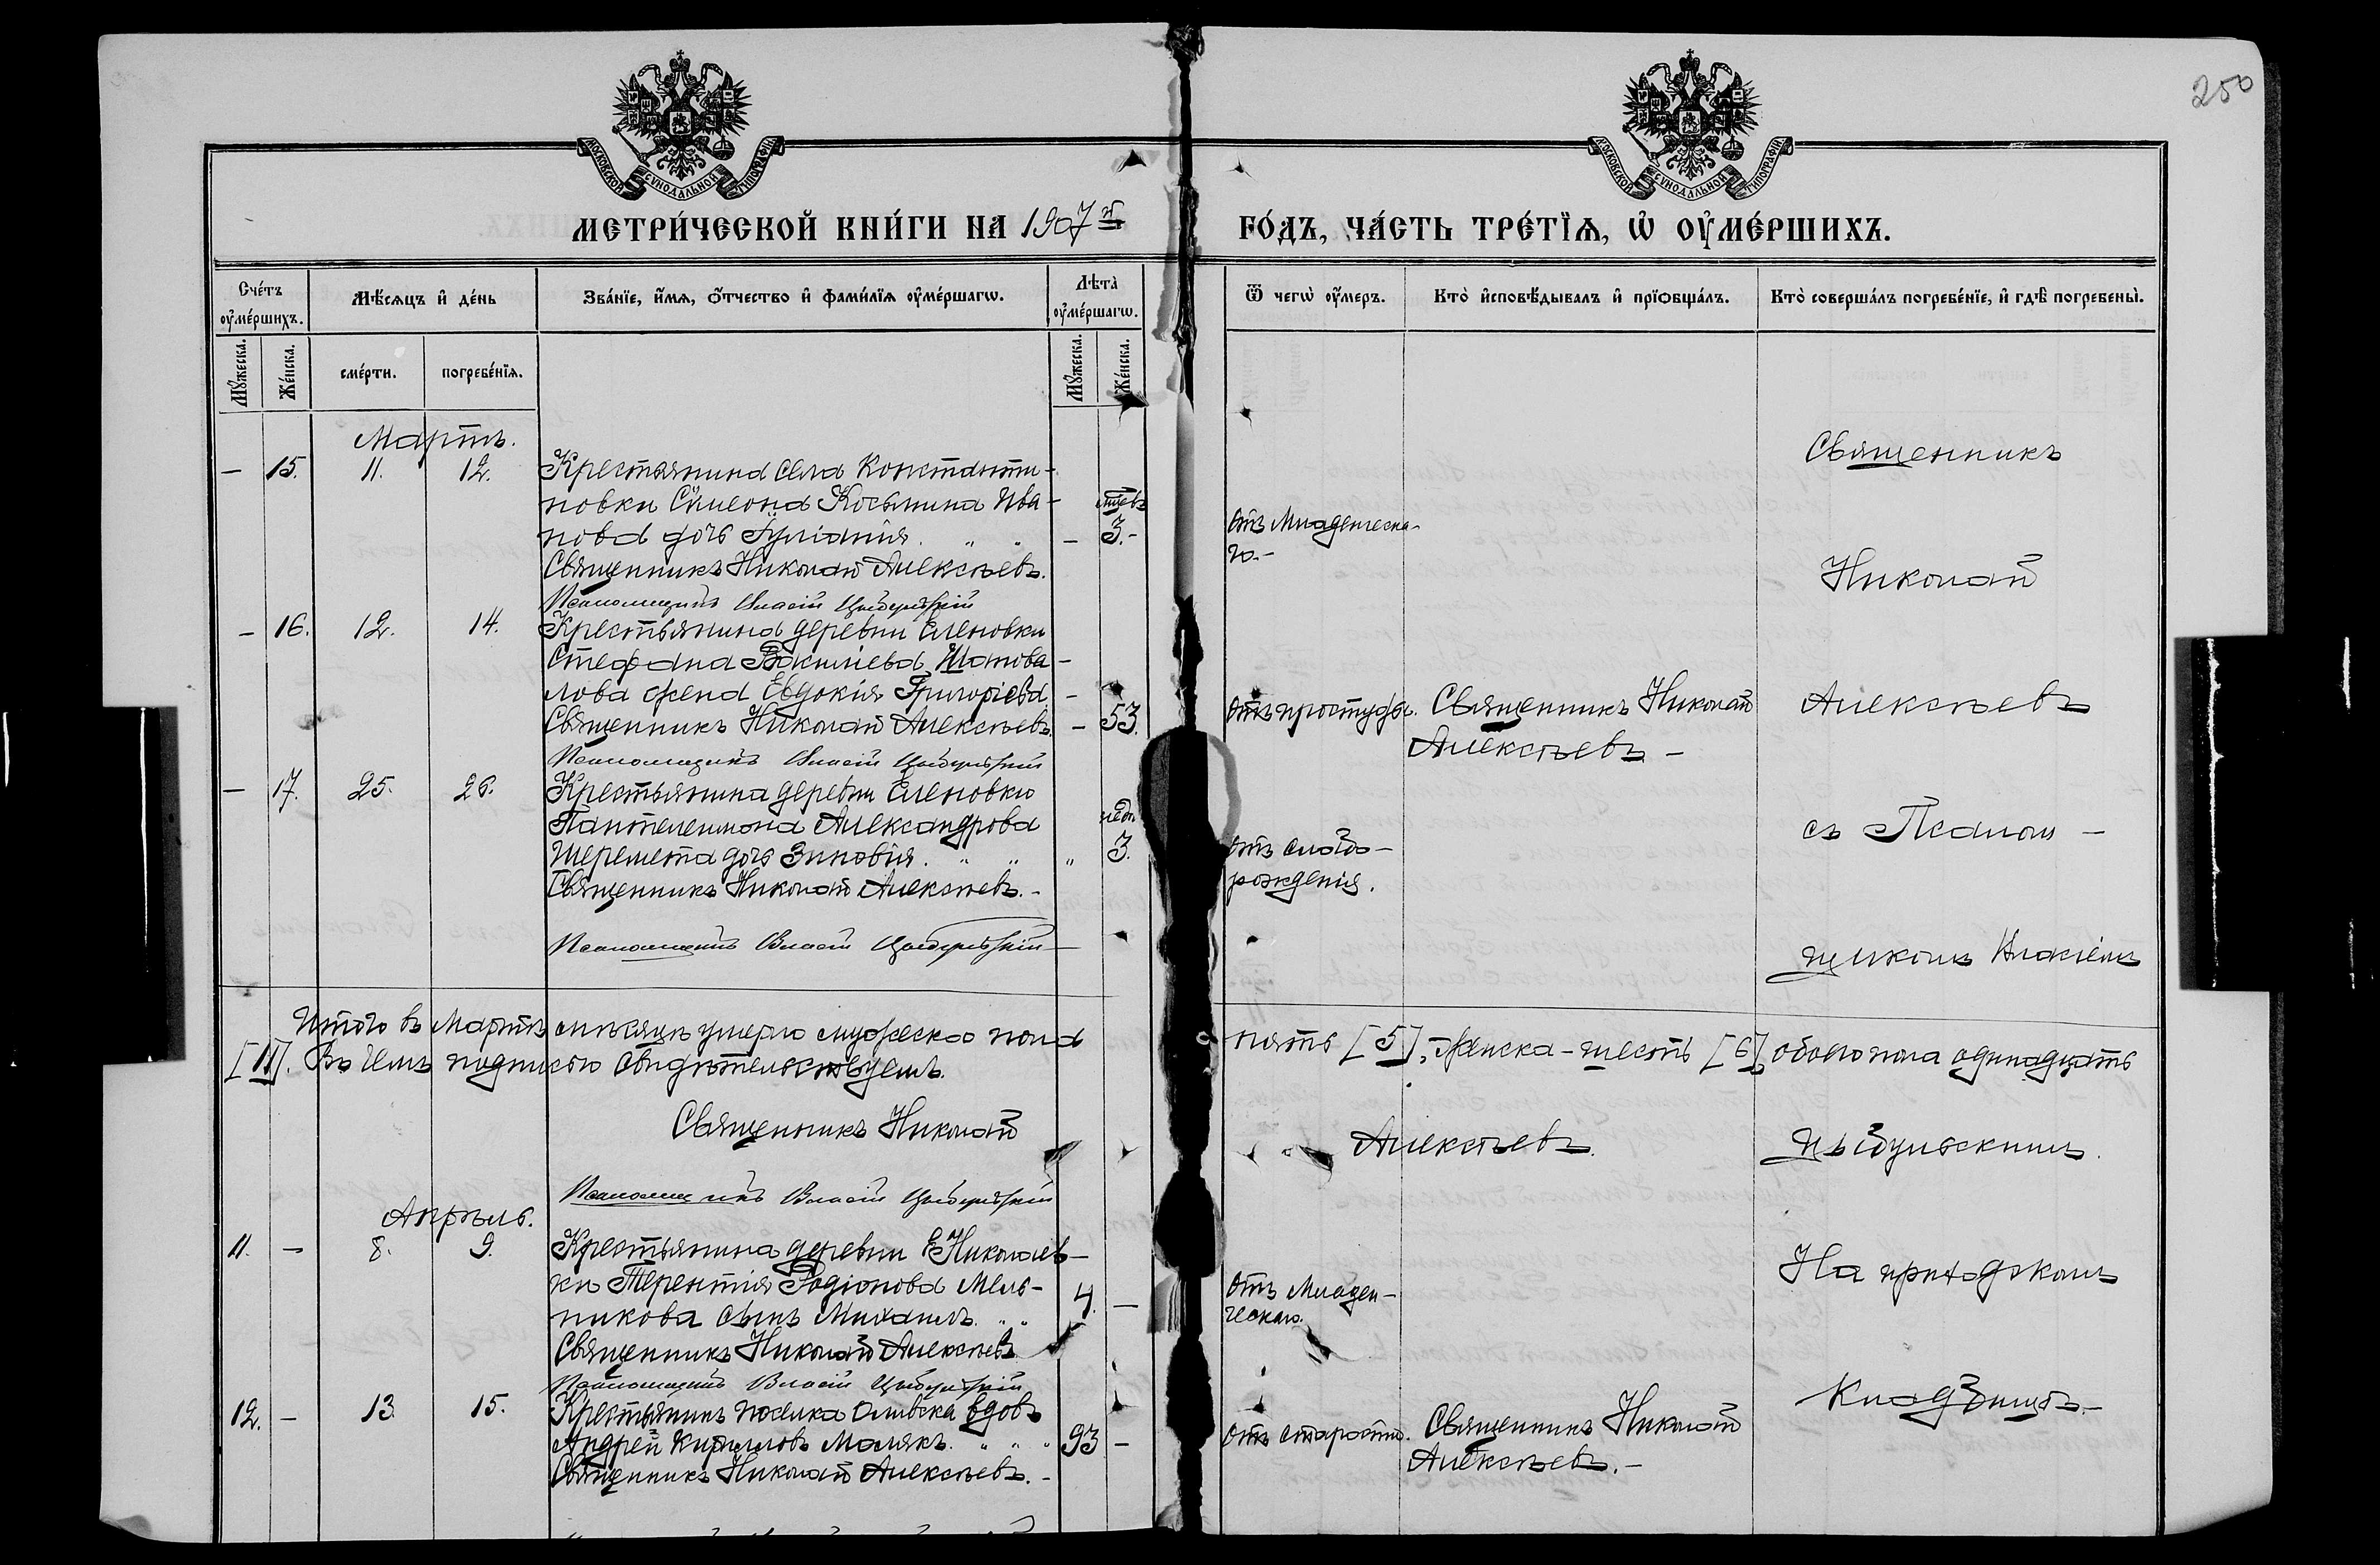 250
МОСКОВСКОЙ СѴНОДАЛЬНОЙ ТИПОГРАФІИ
МОСКОВСКОЙ СѴНОДАЛЬНОЙ ТИПОГРАФІИ
МЕТРИ́ЧЕСКОЙ КНИ́ГИ НА 1907й
ГО́ДЪ, ЧА́СТЬ ТРЕ́ТЇѦ, Ѡ҆ ОУ҆МЕ́РШИХЪ.
Сче́тъ оу҆ме́ршихъ.
Мѣ́сяцъ и҆ де́нь
Зва́нїе, и҆́мѧ, ѻ҆́тчество и҆ фами́лїѧ оу҆ме́ршагѡ.
Лѣта̀ оу҆ме́ршагѡ.
Ѿ чегѡ̀ оу҆́меръ.
Кто̀ и҆сповѣ́дывалъ и҆ прїѡбща́лъ.
Кто̀ соверша́лъ погребе́нїе, и҆ гдѣ̀ погребены̀.
Мꙋ́жеска.
Же́нска.
сме́рти.
погребе́нїѧ.
Мꙋ́жеска.
Же́нска.
Мартъ.
— 15. 11. 12. Крестьянина села Константи-
новки Сѵмеона Косьмина Ива-
нова дочь Іуліанія. " " — мцевъ 3.-
Священникъ Николай Алексѣевъ.
Псаломщикъ Власій Цыбульскій
отъ Младенческа-
го.-
— 16. 12. 14. Крестьянина деревни Еленовки
Стефана Василіева Шапова-
лова жена Евдокія Григоріева -
Священникъ Николай Алексѣевъ. — 53.
Псаломщикъ Власій Цыбульскій
отъ простуды. Священникъ Николай
Алексѣевъ. —
— 17. 25. 26. Крестьянина деревни Еленовки
Пантелеимона Александрова
Шеремета дочь Зиновія. " " " недѣ. 3.
Священникъ Николай Алексѣевъ.-
Псаломщикъ Власій Цыбульскій
отъ слабо-
рожденія.
Священникъ
Николай
Алексѣевъ
съ Псалом —
щикомъ Власіемъ
Итого въ Мартѣ мѣсяцѣ умерло мужеска пола пять [5], женска - шесть [6], обоего пола одинадцать
[11]. Въ чемъ подписью свидѣтельствуемъ.
Священникъ Николай Алексѣевъ.
Псаломщикъ Власій Цыбульскій
Цыбульскимъ.
Апрѣль.
11. — 8. 9. Крестьянина деревни Николаев-
ки Терентія Родіонова Мель-
никова сынъ Михаилъ. " " 4. —
Священникъ Николай Алексѣевъ
Псаломщикъ Власій Цыбульскій
отъ Младен-
ческаго.
На приходскомъ
12. — 13. 15. Крестьянинъ поселка вдовъ
Андрей Кирилловъ Малякъ. " " " 93 —
Священникъ Николай Алексѣевъ. -
отъ старости. Священникъ Николай
Алексѣевъ.—
Кладбищѣ.-